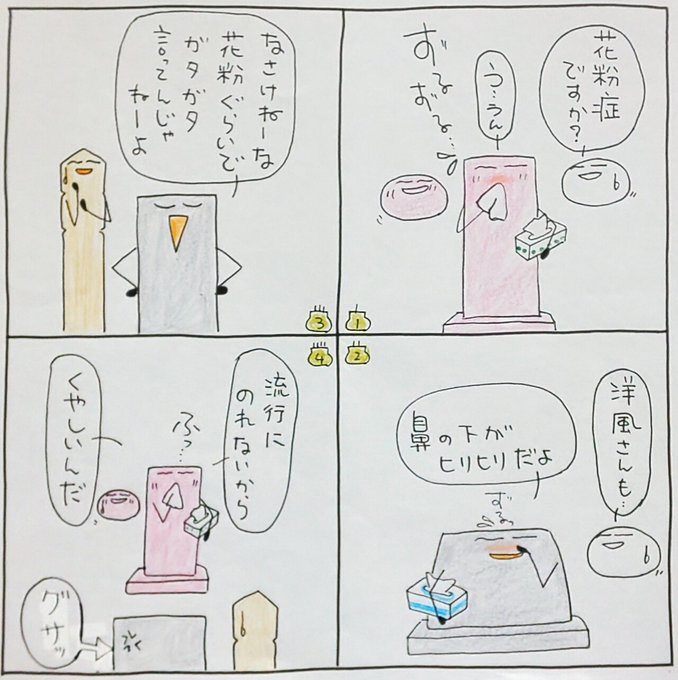 花粉症
ですか?
う…うん
ずるずる…
1
洋風さんも…
鼻の下が
ヒリヒリだよ
ずるっ
2
なさけねーな
花粉ぐらいで
ガタガタ
言ってんじゃ
ねーよ
3
流行に
のれないから
ふっ…
くやしいんだ
グサッ
4